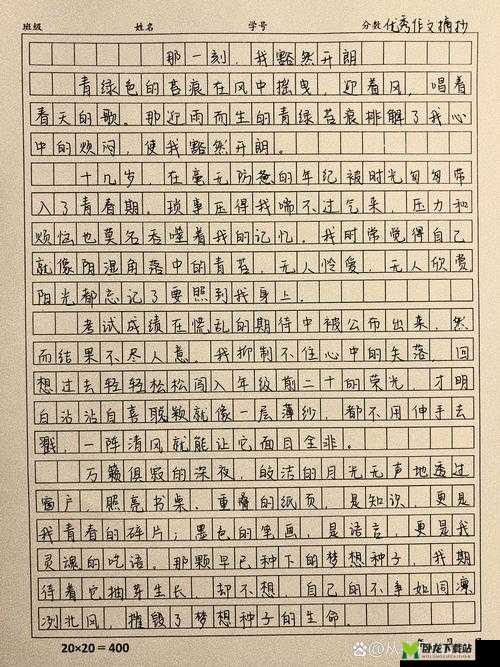 班级 姓名 学号 分数 优秀作文摘抄
那一刻，我豁然开朗
青绿色的苔痕在风中摇曳，迎着风，唱着
春天的歌。那迎雨而生的青绿苔痕排解了我心
中的烦闷，使我豁然开朗。
十几岁，在毫无防备的年纪被时光匆匆带
入了青春期。琐事压得我喘不过气来，压力和
烦恼也莫名吞噬着我的记忆。我时常觉得自己
就像阴湿角落中的青苔，无人怜爱，无人欣赏
阳光都忘记了要照到我身上。
考试成绩在慌乱的期待中被公布出来，然
而结果不尽人意。我抑制不住心中的失落，回
想过去轻轻松松闯入年级前二十的荣光，才明
白沾沾自喜 就像一层薄纱，都不用伸手去
戳，一阵清风就能让它面目全非。
万籁俱寂的深夜，皎洁的月光无声地透过
窗户，照亮书桌，重叠的纸页，是知识，更是
我青春的碎片；墨色的笔画，是语言，更是我
灵魂的呓语。那颗早已种下的梦想种子，我期
待着它抽芽生长，却不想，自己的不争如同凛
冽北风，摧毁了梦想种子的生命
20×20=400
卧龙下载站